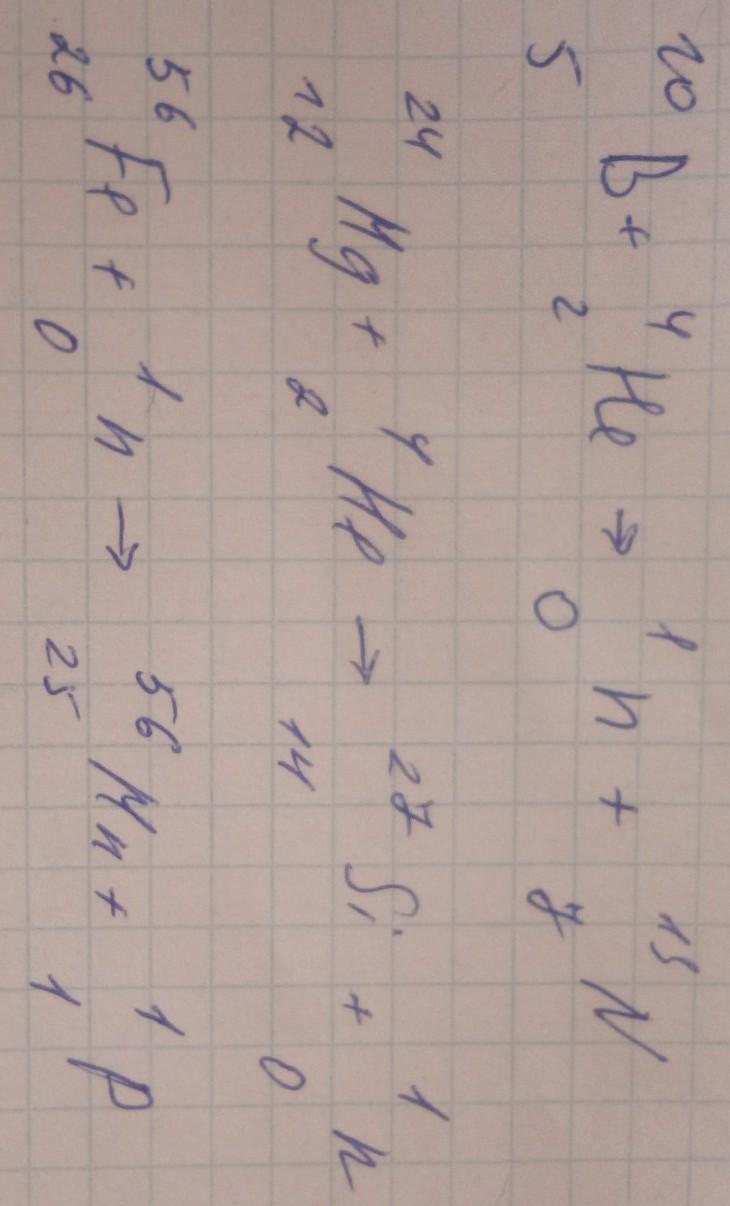 ¹⁰₅B + ⁴₂He → ¹₀n + ¹³₇N
²⁴₁₂Mg + ⁴₂He → ²⁷₁₄Si + ¹₀n
⁵⁶₂₆Fe + ¹₀n → ⁵⁶₂₅Mn + ¹₁p